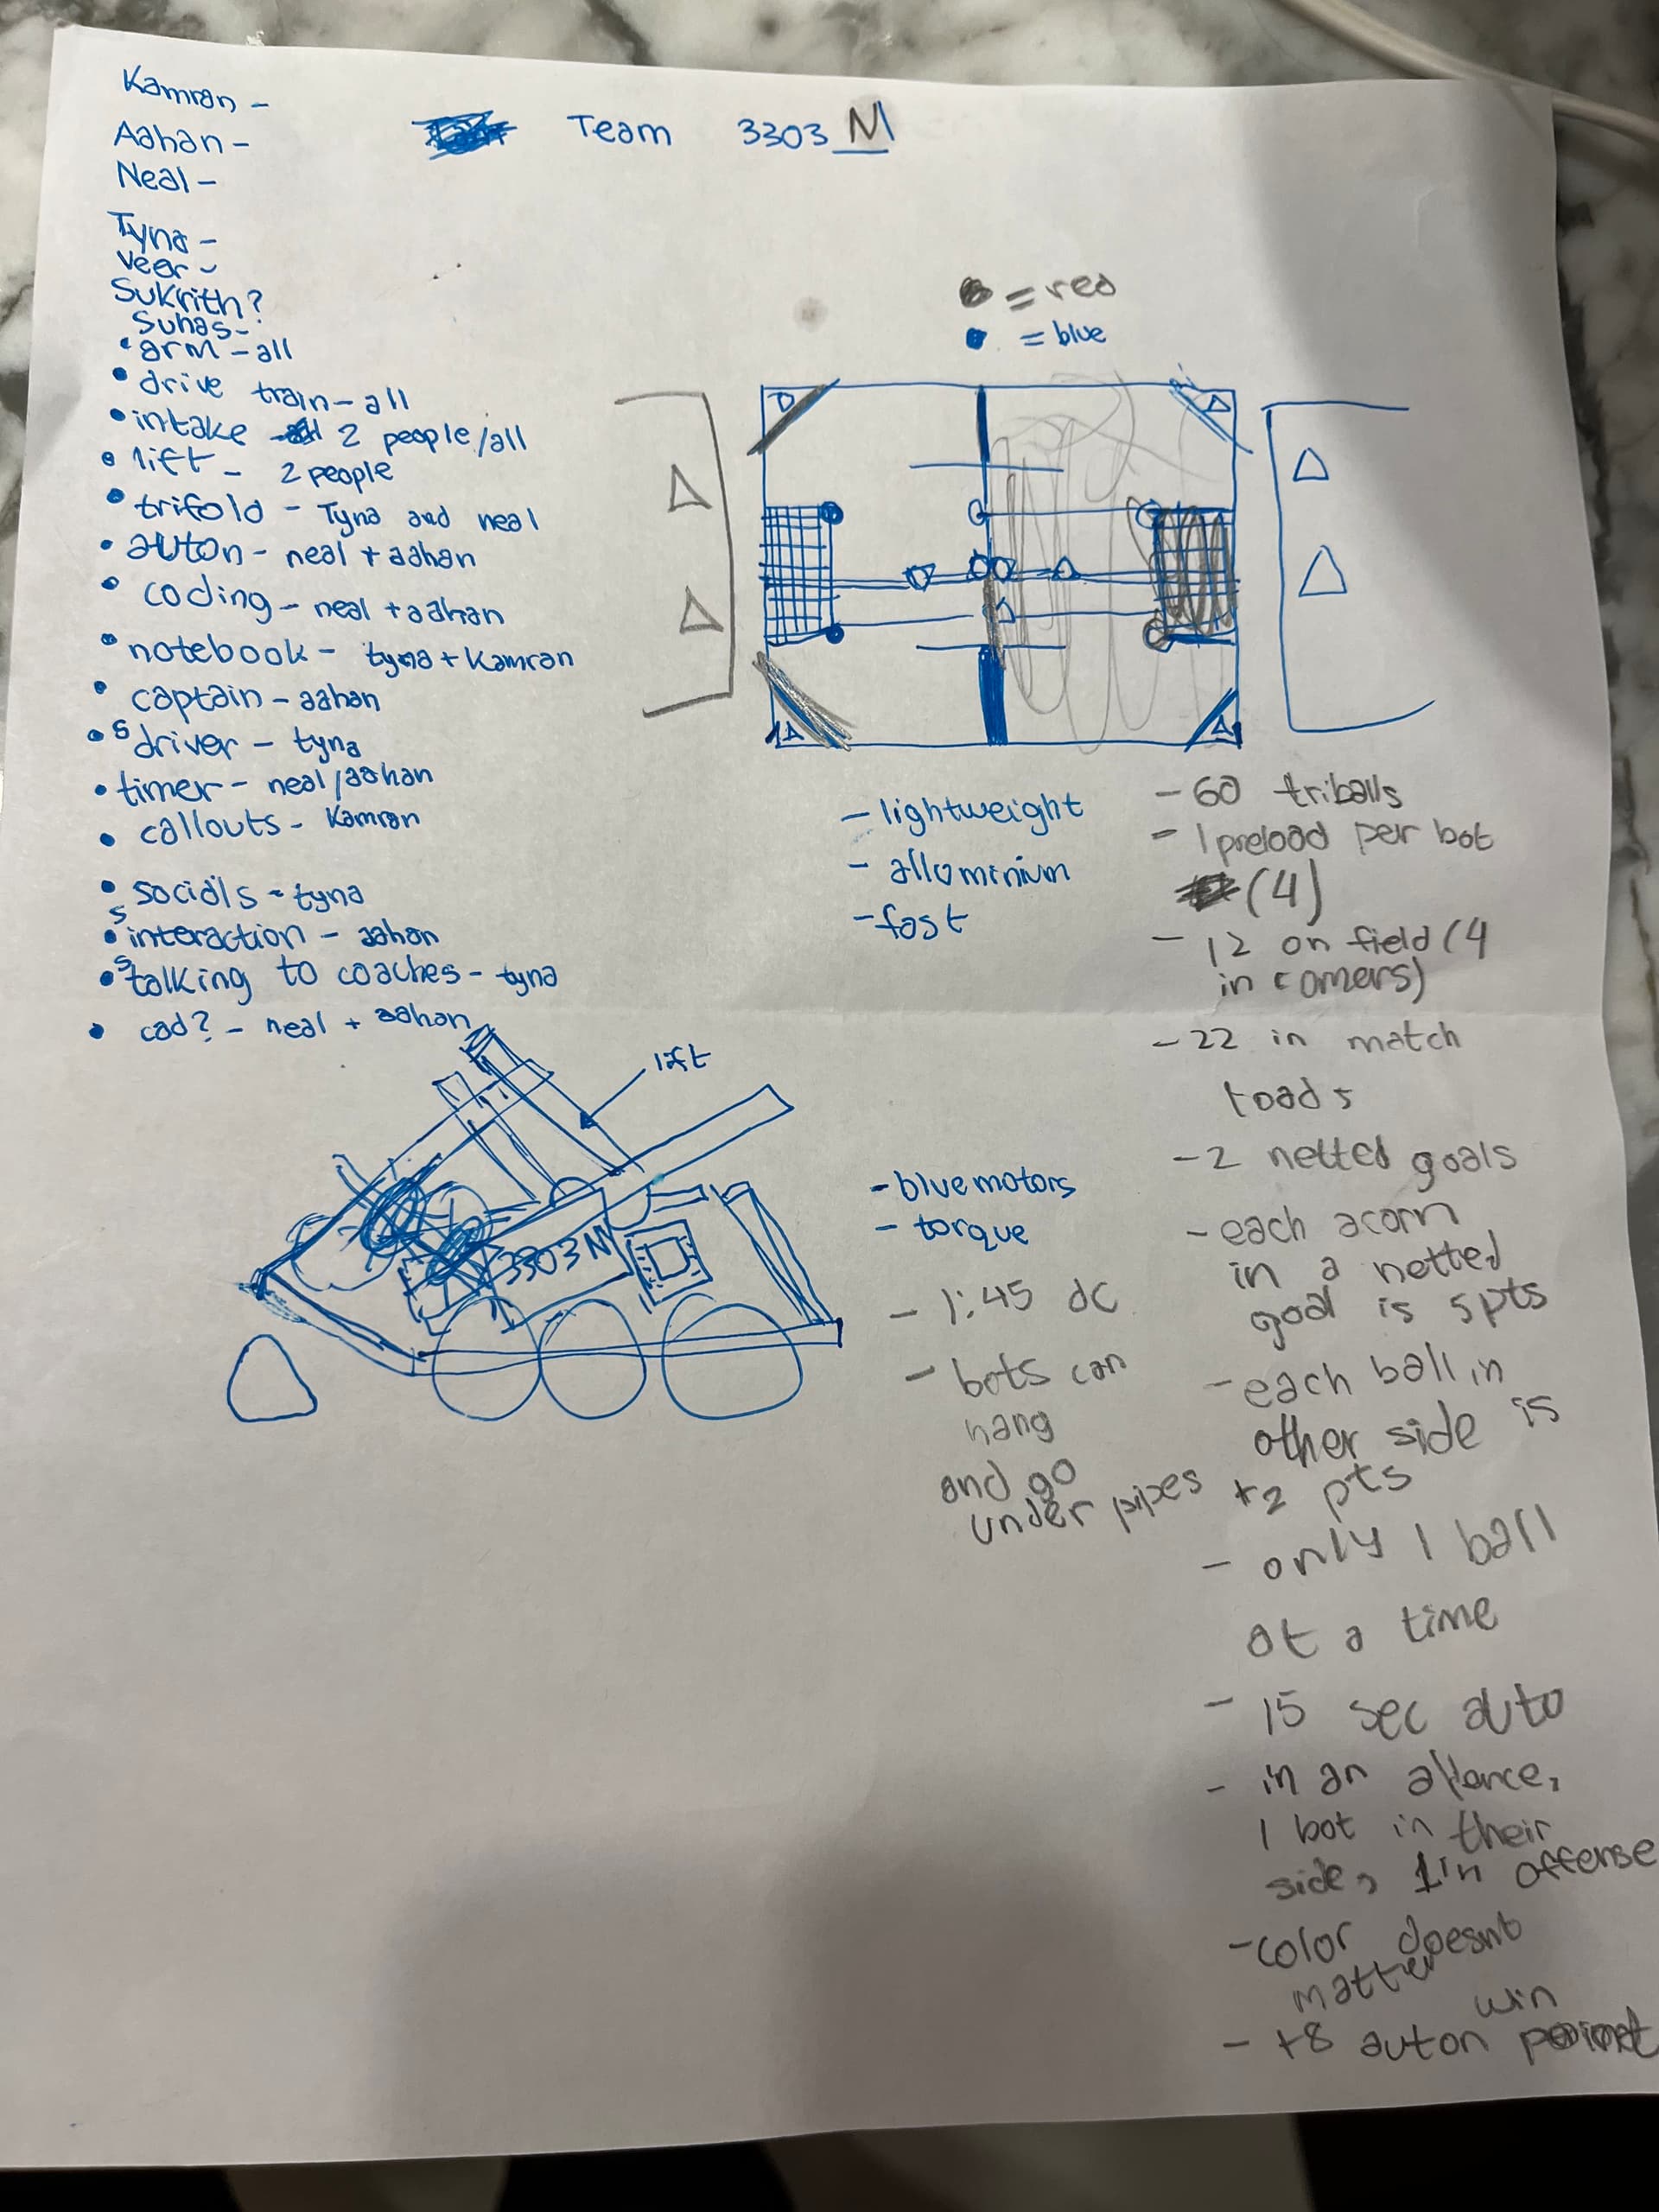 Kamran -
Aahan -
Neal -
Tyna -
Veer -
Sukrith?
Suhas -
Team 3303 M
• arm - all
• drive train - all
• intake - 2 people/all
• lift - 2 people
• trifold - Tyna and neal
• auton - neal + aahan
• coding - neal + aahan
• notebook - tyna + Kamran
• captain - aahan
• driver - tyna
• timer - neal/aahan
• callouts - Kamran
• socials - tyna
• interaction - aahan
• talking to coaches - tyna
• cad? - neal + aahan
= red
= blue
- lightweight
- allominium
- fast
lift
3303M
- blue motors
- torque
- 1:45 dc
- bots can
hang
and go
under pipes
- 60 triballs
- 1 preload per bot
(4)
- 12 on field (4
in corners)
- 22 in match
loads
- 2 netted goals
- each acorn
in a netted
goal is 5pts
- each ball in
other side is
+2 pts
- only 1 ball
at a time
- 15 sec auto
- in an allence,
1 bot in their
side, 1 in offense
- color doesnt
matter
win
- +8 auton point